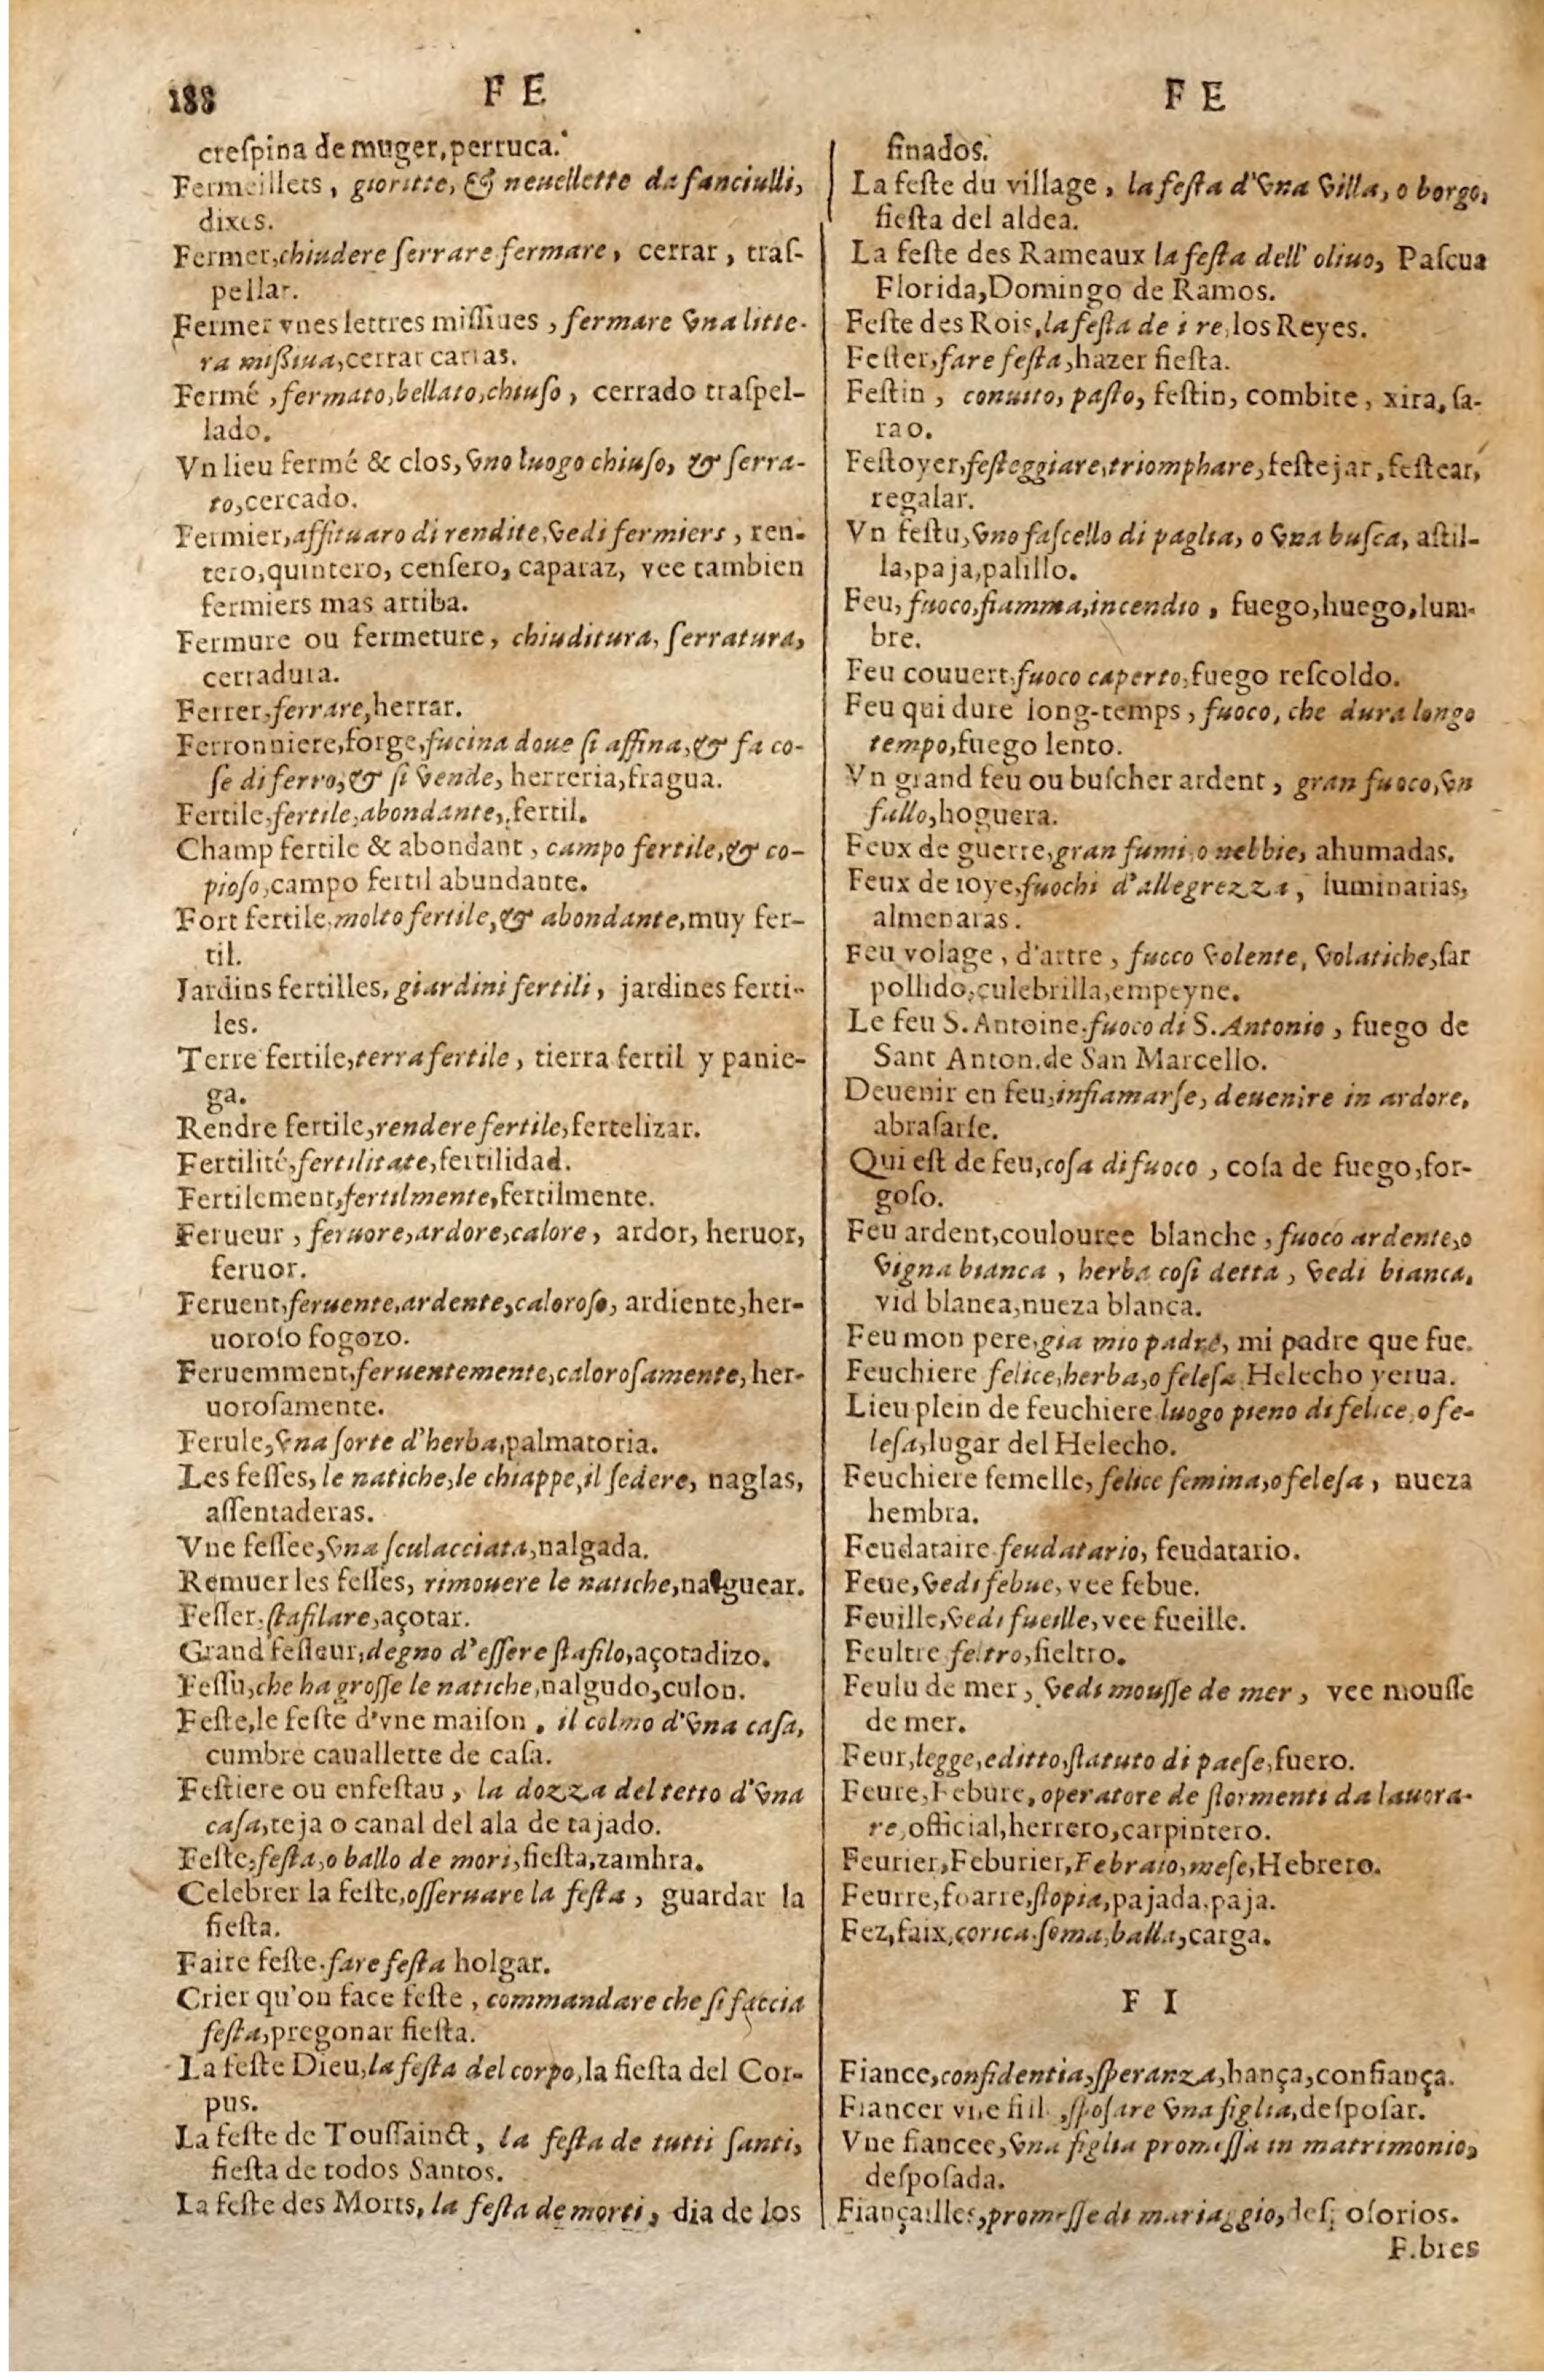 188
F E
creſpina de muger, perruca.
Fermeillets, gioritte, & neuellette da fanciulli,
dixes.
Fermer, chiudere ſerrare fermare, cerrar, traſ-
pellar.
Fermer vnes lettres miſſiues, fermare vna litte-
ra miſsiua, cerrar cartas.
Fermé, fermato, bellato, chiuſo, cerrado traſpel-
lado.
Vn lieu fermé & clos, vno luogo chiuſo, & ſerra-
to, cercado.
Fermier, affituaro di rendite, vedi fermiers, ren-
tero, quintero, cenſero, caparaz, vee tambien
fermiers mas arriba.
Fermure ou fermeture, chiuditura, ſerratura,
cerradura.
Ferrer, ferrare, herrar.
Ferronniere, forge, fucina doue ſi affina, & fa co-
ſe di ferro, & ſi vende, herreria, fragua.
Fertile, fertile, abondante, fertil.
Champ fertile & abondant, campo fertile, & co-
pioſo, campo fertil abundante.
Fort fertile, molto fertile, & abondante, muy fer-
til.
Jardins fertilles, giardini fertili, jardines ferti-
les.
Terre fertile, terra fertile, tierra fertil y panie-
ga.
Rendre fertile, rendere fertile, fertelizar.
Fertilité, fertilitate, fertilidad.
Fertilement, fertilmente, fertilmente.
Ferueur, feruore, ardore, calore, ardor, heruor,
feruor.
Feruent, feruente, ardente, caloroſo, ardiente, her-
uoroſo fogozo.
Feruemment, feruentemente, caloroſamente, her-
uoroſamente.
Ferule, vna ſorte d'herba, palmatoria.
Les feſſes, le natiche, le chiappe, il ſedere, naglas,
aſſentaderas.
Vne feſſee, vna ſculacciata, nalgada.
Remuer les feſſes, rimouere le natiche, nalguear.
Feſſer, ſtafilare, açotar.
Grand feſſeur, degno d'eſſere ſtafilo, açotadizo.
Feſſu, che ha groſſe le natiche, nalgudo, culon.
Feſte, le feſte d'vne maiſon, il colmo d'vna caſa,
cumbre cauallette de caſa.
Feſtiere ou enfeſtau, la dozza del tetto d'vna
caſa, teja o canal del ala de tajado.
Feſte, feſta, o ballo de mori, fieſta, zamhra.
Celebrer la feſte, oſſeruare la feſta, guardar la
fieſta.
Faire feſte, fare feſta holgar.
Crier qu'on face feſte, commandare che ſi faccia
feſta, pregonar fieſta.
La feſte Dieu, la feſta del corpo, la fieſta del Cor-
pus.
La feſte de Touſſainct, la feſta de tutti ſanti,
fieſta de todos Santos.
La feſte des Morts, la feſta de morti, dia de los
F E
finados.
La feſte du village, la feſta d'vna villa, o borgo,
fieſta del aldea.
La feſte des Rameaux la feſta dell' oliuo, Paſcua
Florida, Domingo de Ramos.
Feſte des Rois, la feſta de i re, los Reyes.
Feſter, fare feſta, hazer fieſta.
Feſtin, conuito, paſto, feſtin, combite, xira, ſa-
rao.
Feſtoyer, feſteggiare, triomphare, feſtejar, feſtear,
regalar.
Vn feſtu, vno faſcello di paglia, o vna buſca, aſtil-
la, paja, palillo.
Feu, fuoco, fiamma, incendio, fuego, huego, lum-
bre.
Feu couuert, fuoco caperto, fuego reſcoldo.
Feu qui dure long-temps, fuoco, che dura longo
tempo, fuego lento.
Vn grand feu ou buſcher ardent, gran fuoco, vn
fallo, hoguera.
Feux de guerre, gran fumi, o nebbie, ahumadas.
Feux de ioye, fuochi d'allegrezza, luminarias,
almenaras.
Feu volage, d'artre, fuoco volente, volatiche, ſar
pollido, culebrilla, empeyne.
Le feu S. Antoine, fuoco di S. Antonio, fuego de
Sant Anton, de San Marcello.
Deuenir en feu, infiamarſe, deuenire in ardore,
abraſarſe.
Qui eſt de feu, coſa di fuoco, coſa de fuego, for-
goſo.
Feu ardent, coulouree blanche, fuoco ardente, o
vigna bianca, herba coſi detta, vedi bianca,
vid blanca, nueza blanca.
Feu mon pere, gia mio padre, mi padre que fue.
Feuchiere felice, herba, o feleſa, Helecho yerua.
Lieu plein de feuchiere luogo pieno di felice, o fe-
leſa, lugar del Helecho.
Feuchiere femelle, felice femina, o feleſa, nueza
hembra.
Feudataire feudatario, feudatario.
Feue, vedi febue, vee febue.
Feuille, vedi fueille, vee fueille.
Feultre feltro, fieltro.
Feulu de mer, vedi mouſſe de mer, vee mouſſe
de mer.
Feur, legge, editto, ſtatuto di paeſe, fuero.
Feure, Febure, operatore de ſtormenti da lauora-
re, official, herrero, carpintero.
Feurier, Feburier, Febraio, meſe, Hebrero.
Feurre, foarre, ſtopia, pajada, paja.
Fez, faix, corica, ſoma, balla, carga.
F I
Fiance, confidentia, ſperanza, hança, confiança.
Fiancer vne fill, ſpoſare vna figlia, deſpoſar.
Vne fiancee, vna figlia promeſſa in matrimonio,
deſpoſada.
Fiançailles, promeſſe di mariaggio, deſpoſorios.
F.bres